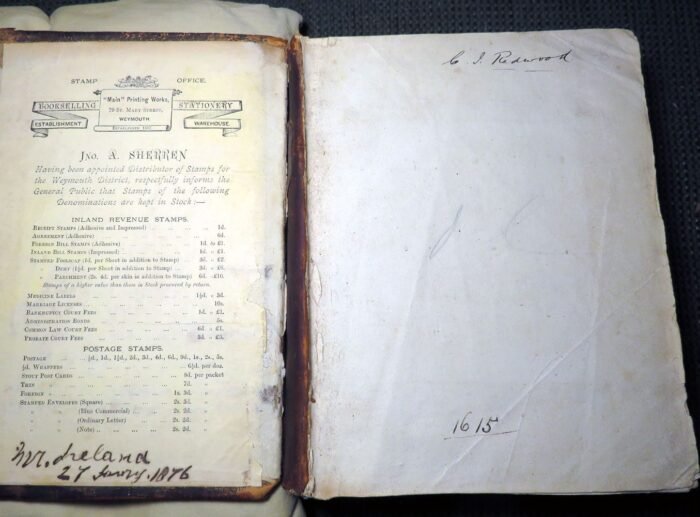 STAMP OFFICE.
BOOKSELLING ESTABLISHMENT
"Main" Printing Works,
70 St. Mary Street,
WEYMOUTH
STATIONERY WAREHOUSE.
Jno. A. SHERREN
Having been appointed Distributor of Stamps for
the Weymouth District, respectfully informs the
General Public that Stamps of the following
Denominations are kept in Stock:—
INLAND REVENUE STAMPS.
Receipt Stamps (Adhesive and Impressed) 1d.
Agreement (Adhesive) 6d.
Foreign Bill Stamps (Adhesive) 1d. to £1.
Inland Bill Stamps (Impressed) 1d. " £1.
Stamped Foolscap (1d. per Sheet in addition to Stamp) 3d. " £2.
" Demy (1½d. per Sheet in addition to Stamp) 3d. "
" Parchment (2s. 4d. per skin in addition to Stamp) 6d. " £10.
Stamps of a higher value than these in Stock procured by return.
Medicine Labels 1½d. " 3d.
Marriage Licenses 10s.
Bankruptcy Court Fees 1d. " £1.
Administration Bonds 5s.
Common Law Court Fees 6d. " £1.
Probate Court Fees 3d. " £5.
POSTAGE STAMPS.
Postage ½d., 1d., 1½d., 2d., 3d., 4d., 6d., 9d., 1s., 2s., 5s.
½d. Wrappers 6½d. per doz.
Stout Post Cards 8d. per packet
Thin " 7d. "
Foreign " 1s. 3d. "
Stamped Envelopes (Square) 2s. 2d. "
" " (Blue Commercial) 2s. 2d. "
" " (Ordinary Letter) 2s. 2d. "
" " (Note) 2s. 2d. "
Mr. Ireland
27 Janry. 1876
C. I. Redwood
1615